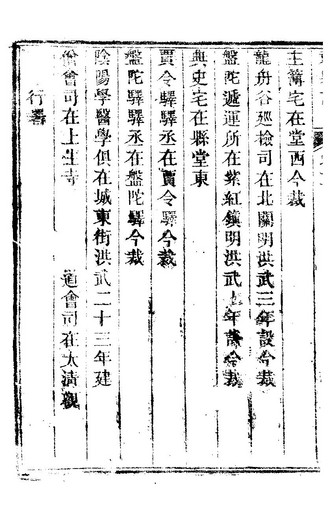 主簿宅在堂西今裁
龍舟谷廵檢司在北關明洪武三年設今裁
盤陀遞運所在紫紅鎮明洪武年今裁
典史宅在縣堂東
賈令驛驛丞在賈令驛今裁
盤陀驛驛丞在盤陀驛今裁
陰陽學醫學俱在城東街洪武二十三年建
會司在上生寺　道會司在太清觀
行署